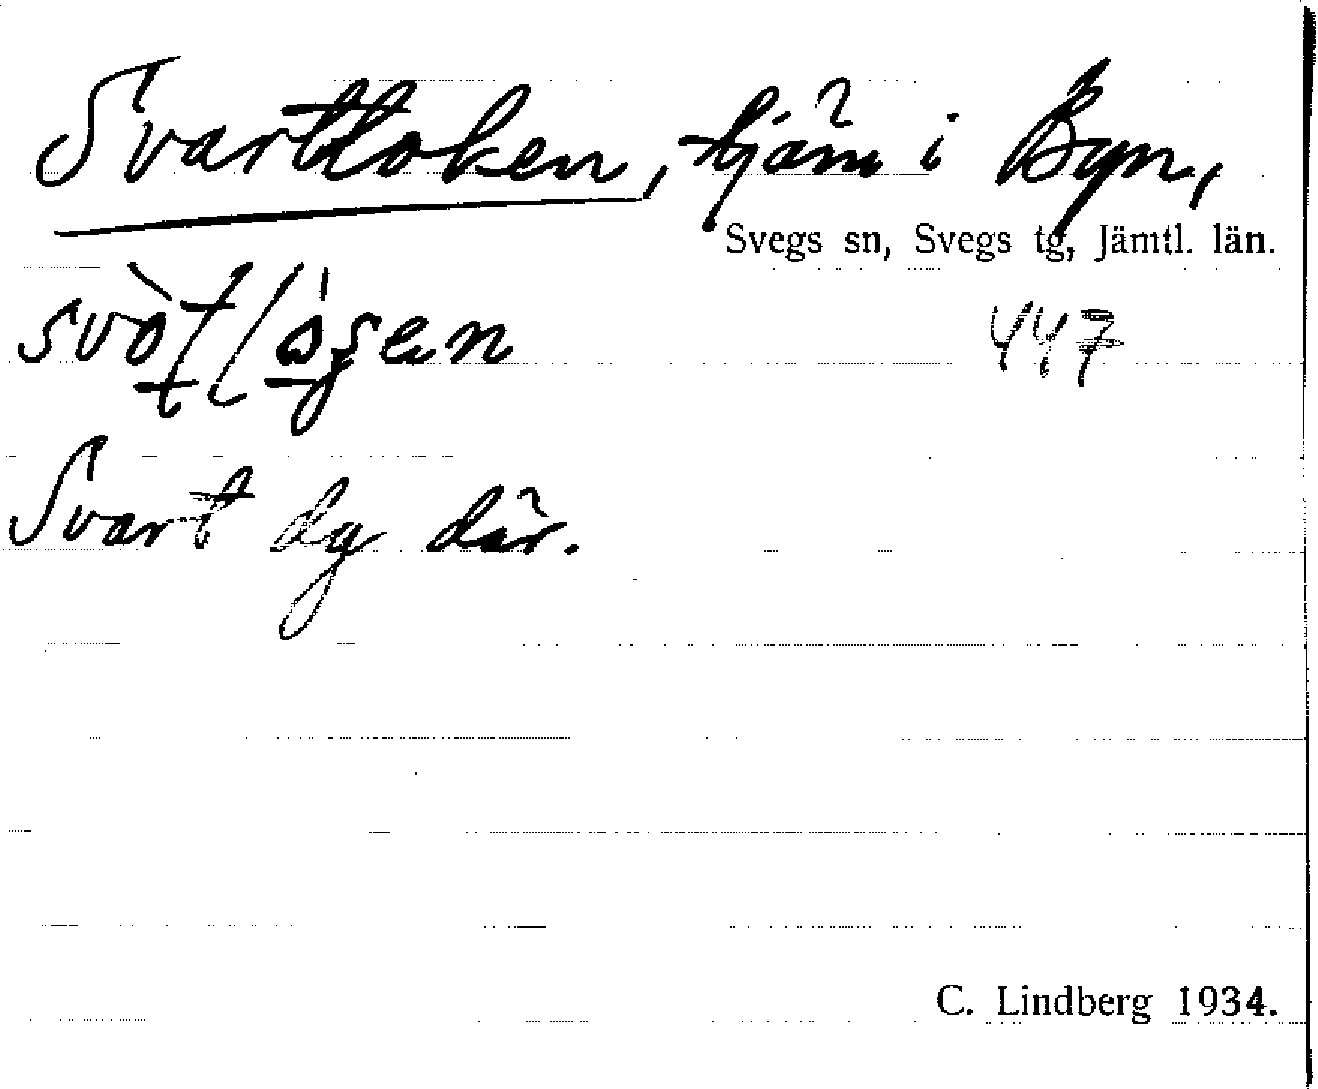 Svarttoken, tjärn i Byn,
Svegs sn, Svegs tg, Jämtl. län.
447
Svart dy där.
C. Lindberg 1934.